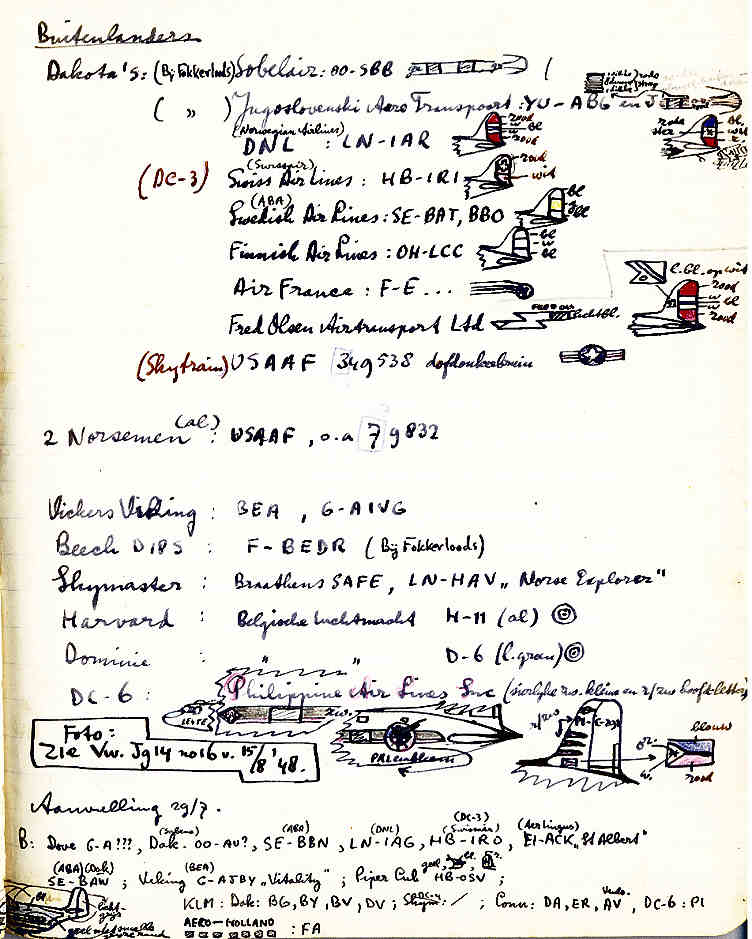 Buitenlanders
Dakota's: (Bij Fokkerloods) Sobelair: OO-SBB
( " ) Jugoslovenski Aero Transpoort: YU-ABG en J
rode
ster
bl.
w.
r.
(Norwegian Airlines)
DNL : LN-IAR
rood
w
bl
(Swissair)
(DC-3) Swiss Air Lines: HB-IRI
rood
wit
(ABA)
Swedish Air Lines: SE-BAT, BBO
bl
gl
bl
Finnish Air Lines: OH-LCC
bl
w
bl
Air France: F-E...
l.bl. op wit
rood
w
bl
w
rood
Fred Olsen Airtransport Ltd
FRED OLS
lichtbl.
(Skytrain) USAAF 349538 dofdonkerbruin
(al)
2 Norsemen : USAAF, o.a 79832
Vickers Viking : BEA, G-AIVG
Beech D18S : F-BEDR (Bij Fokkerloods)
Skymaster : Braathens SAFE, LN-HAV „Norse Explorer"
Harvard : Belgische Luchtmacht H-11 (al)
Dominie : " " D-6 (l.grau)
DC-6 : Philippine Air Lines Inc (sierlijke zw. kleine en r/zw hoofdletter)
zw.
r/zw
PI-C-293
blauw
w.
rood
PAL embleem
Foto:
Zie Vw. Jg 14 no 16 v. 15/8 '48.
Aanvulling 29/7.
(Sabena) (ABA) (DNL) (DC-3) (Swissair) (Aer Lingus)
B: Dove G-A???, Dak. OO-AU?, SE-BBN, LN-IAG, HB-IRO, EI-ACK „St Albert"
(ABA) (Dak) (BEA) geel, bl.
SE-BAW ; Viking G-AJBY „Vitality" ; Piper Cub HB-OSV ;
KLM: Dak: BG, BY, BV, DV ; Skym: / ; Conn: DA, ER, AV, DC-6: PI
DC-4
AERO-HOLLAND
: FA
licht-
grijs